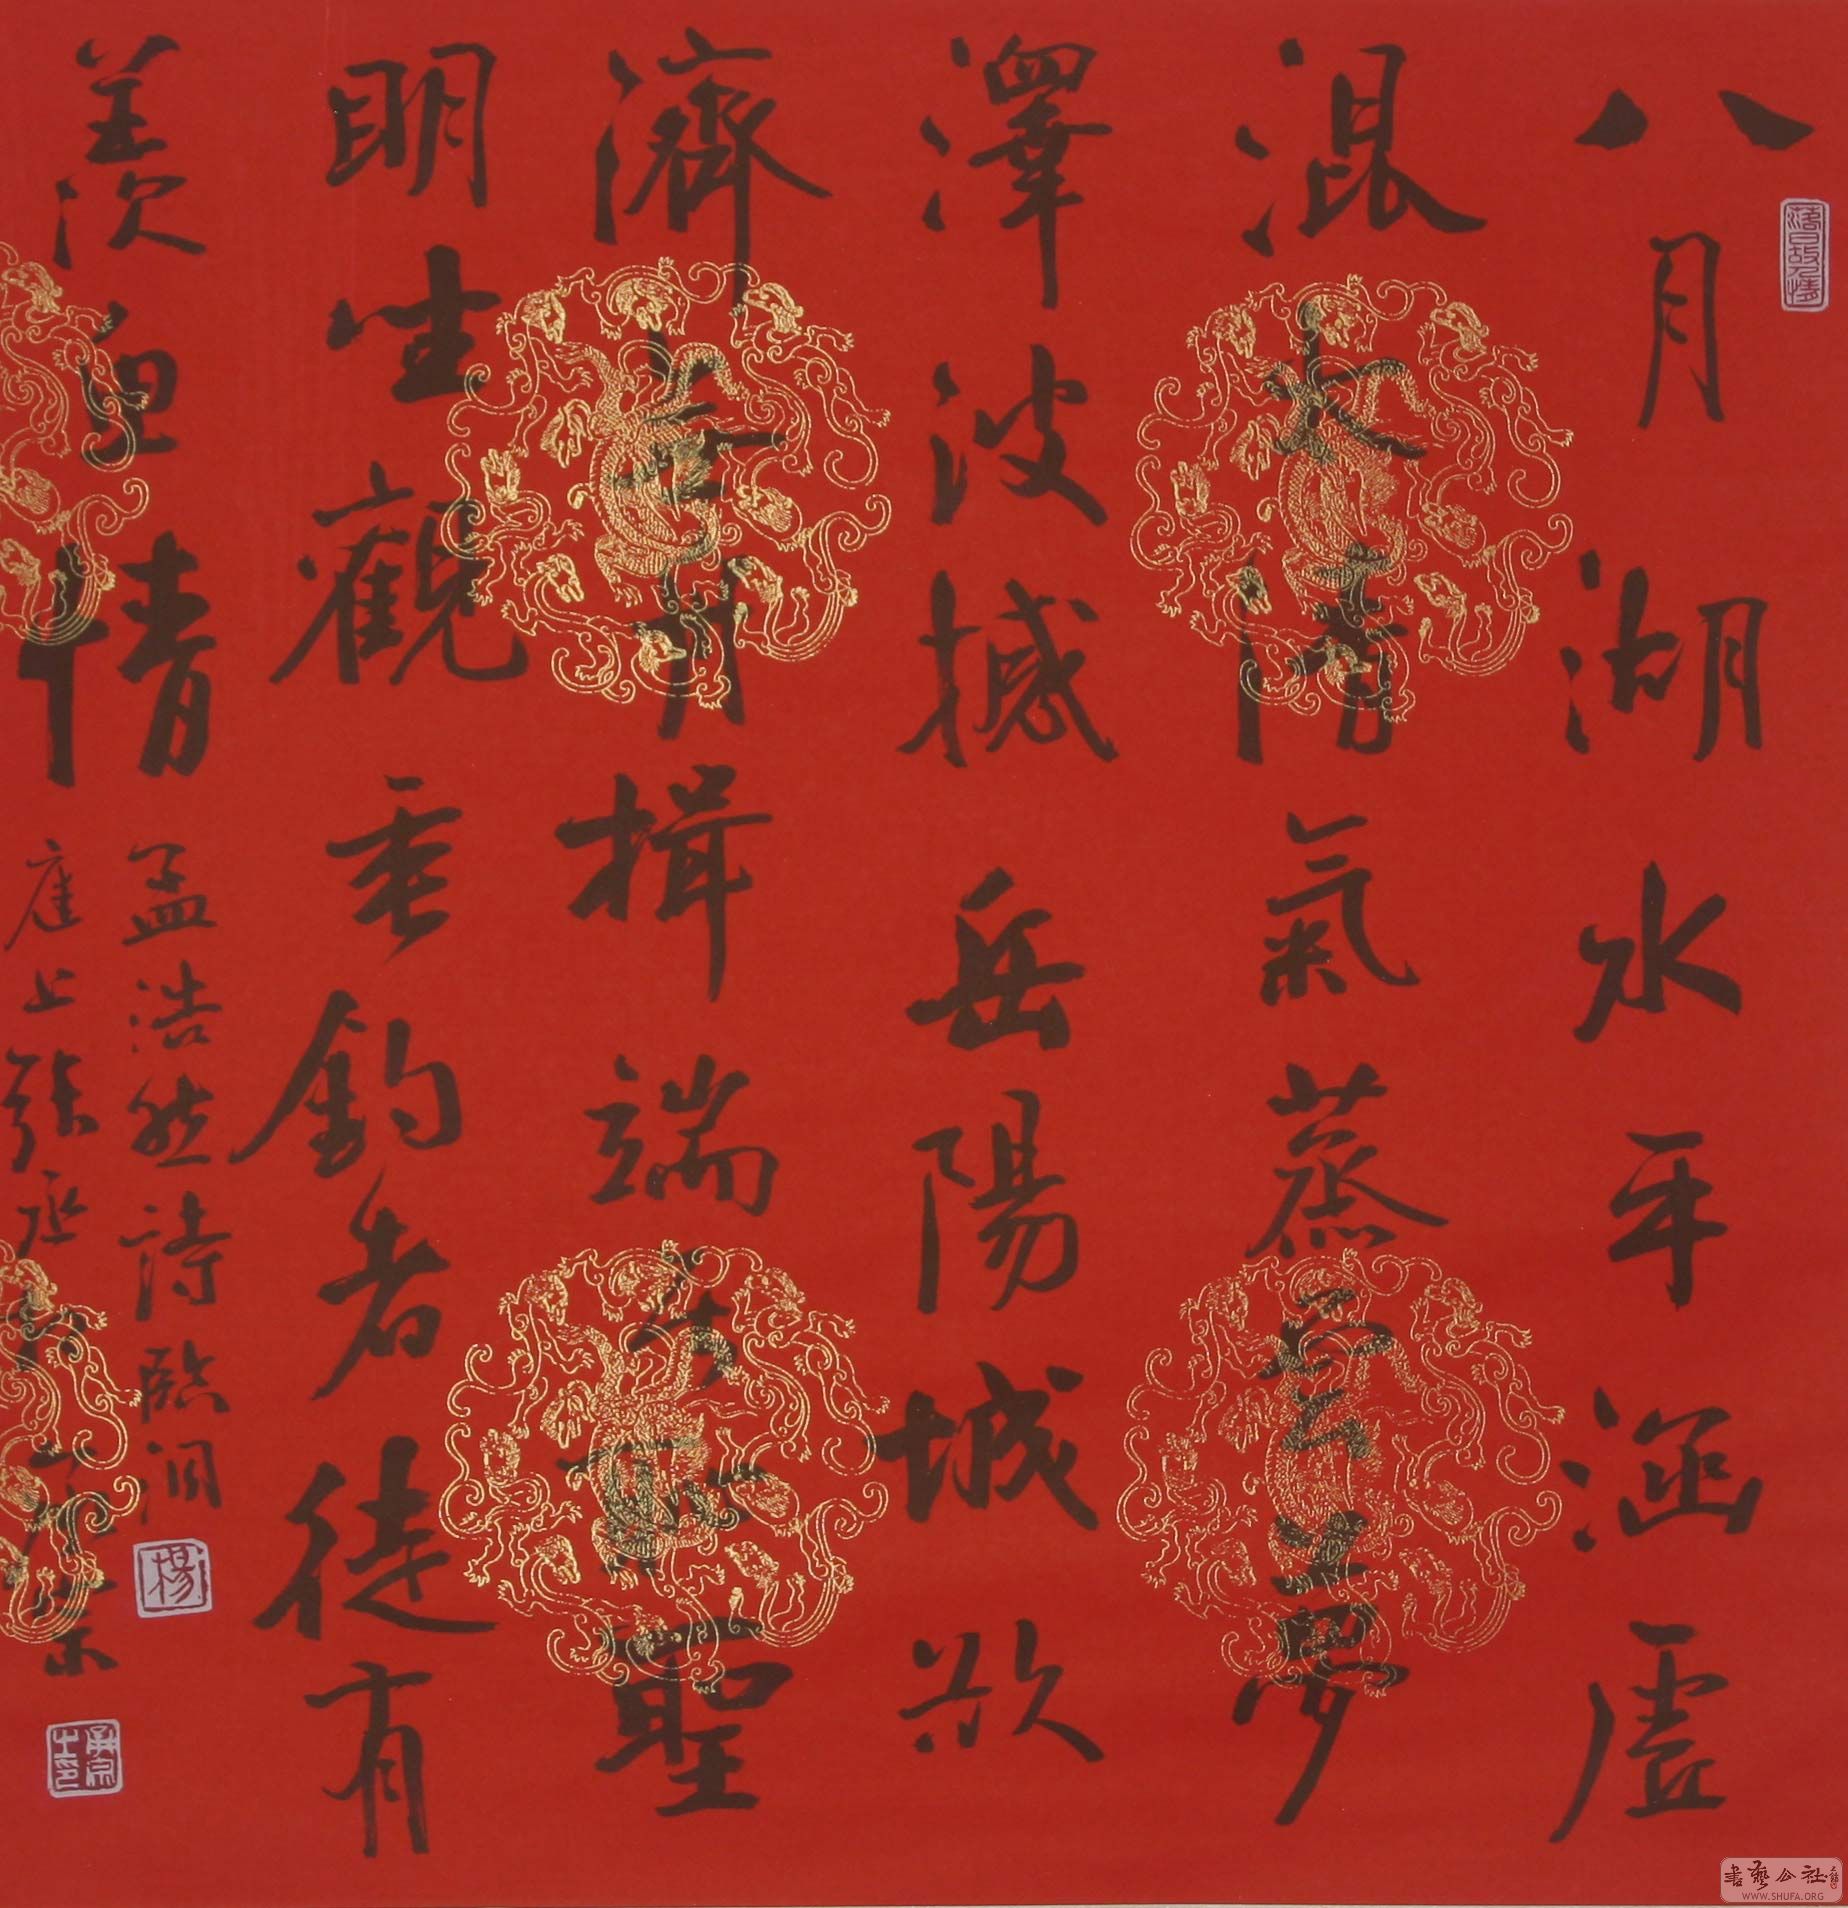 落日故人情
八月湖水平涵虛
混太清氣蒸雲夢
澤波撼岳陽城欲
濟無舟楫端居恥聖
明坐觀垂釣者徒有
羨魚情
孟浩然詩臨洞
楊
庭上張丞相
書藝公社
WWW.SHUFA.ORG